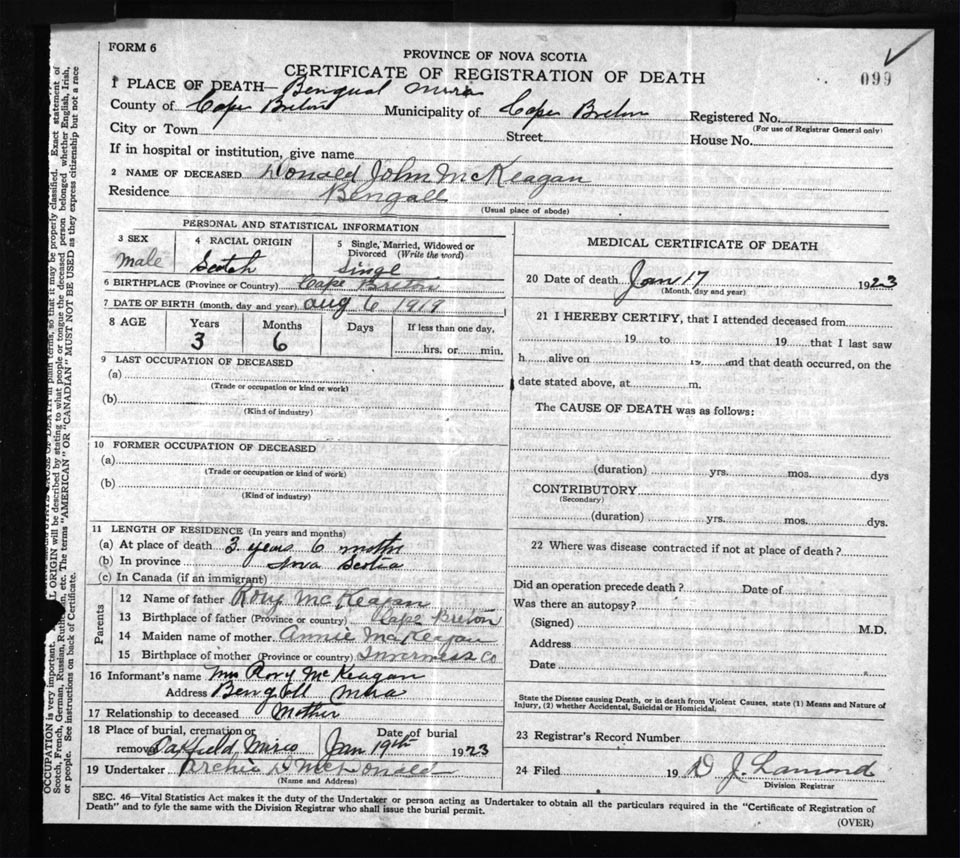 FORM 6
PROVINCE OF NOVA SCOTIA
CERTIFICATE OF REGISTRATION OF DEATH
099
1 PLACE OF DEATH— Bengual Mira
County of Cape Breton Municipality of Cape Breton Registered No.
(For use of Registrar General only)
City or Town Street House No.
If in hospital or institution, give name
2 NAME OF DECEASED Donald John McKeagan
Residence Bengall
(Usual place of abode)
PERSONAL AND STATISTICAL INFORMATION
3 SEX 4 RACIAL ORIGIN 5 Single, Married, Widowed or
Divorced (Write the word)
Male Scotch Singl
6 BIRTHPLACE (Province or Country) Cape Breton
7 DATE OF BIRTH (month, day and year) Aug 6 1919
8 AGE Years Months Days If less than one day,
3 6 hrs. or min.
9 LAST OCCUPATION OF DECEASED
(a)
(Trade or occupation or kind or work)
(b)
(Kind of industry)
10 FORMER OCCUPATION OF DECEASED
(a)
(Trade or occupation or kind of work)
(b)
(Kind of industry)
11 LENGTH OF RESIDENCE (In years and months)
(a) At place of death 3 years 6 moths
(b) In province Nova Scotia
(c) In Canada (if an immigrant)
Parents
12 Name of father Rory McKeagan
13 Birthplace of father (Province or country) Cape Breton
14 Maiden name of mother Annie McKeagan
15 Birthplace of mother (Province or country) Inverness Co
16 Informant's name Mrs Rory McKeagan
Address Bengall Mira
17 Relationship to deceased Mother
18 Place of burial, cremation or Date of burial
removal Oakfield, Jan 19th 1923
19 Undertaker Archie D McDonald
(Name and Address)
MEDICAL CERTIFICATE OF DEATH
20 Date of death Jan 17 1923
(Month, day and year)
21 I HEREBY CERTIFY, that I attended deceased from
19 to 19 that I last saw
h alive on 19 and that death occurred, on the
date stated above, at m.
The CAUSE OF DEATH was as follows:
(duration) yrs. mos. dys
CONTRIBUTORY
(Secondary)
(duration) yrs. mos. dys.
22 Where was disease contracted if not at place of death?
Did an operation precede death? Date of
Was there an autopsy?
(Signed) M.D.
Address
Date
State the Disease causing Death, or in death from Violent Causes, state (1) Means and Nature of
Injury, (2) whether Accidental, Suicidal or Homicidal.
23 Registrar's Record Number
24 Filed 19 D J. Lamond
Division Registrar
SEC. 46—Vital Statistics Act makes it the duty of the Undertaker or person acting as Undertaker to obtain all the particulars required in the "Certificate of Registration of
Death" and to fyle the same with the Division Registrar who shall issue the burial permit.
(OVER)